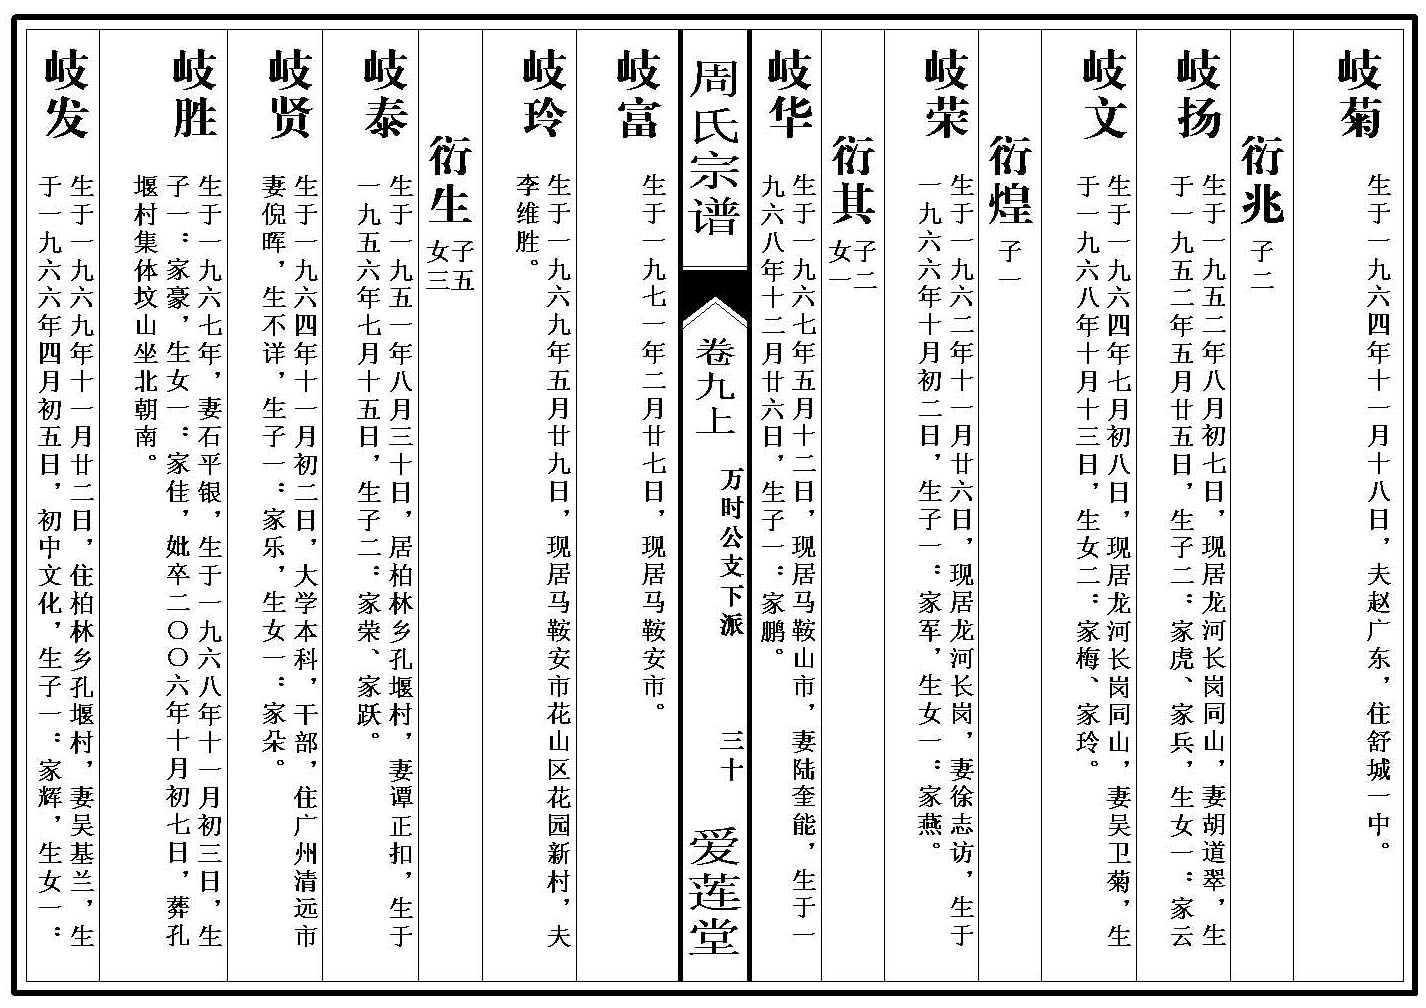 岐菊
生于一九六四年十一月十八日，夫赵广东，住舒城一中。
衍兆
子二
岐扬
生于一九五二年八月初七日，现居龙河长岗同山，妻胡道翠，生
于一九五二年五月廿五日，生子二：家虎、家兵，生女一：家云
岐文
生于一九六四年七月初八日，现居龙河长岗同山，妻吴卫菊，生
于一九六八年十月十三日，生女二：家梅、家玲。
衍煌
子一
岐荣
生于一九六二年十一月廿六日，现居龙河长岗，妻徐志访，生于
一九六六年十月初二日，生子一：家军，生女一：家燕。
衍其
子二
女一
岐华
生于一九六七年五月十二日，现居马鞍山市，妻陆奎能，生于一
九六八年十二月廿六日，生子一：家鹏。
周氏宗谱
卷九上
万时公支下派
三十
爱莲堂
岐富
生于一九七一年二月廿七日，现居马鞍安市。
岐玲
生于一九六九年五月廿九日，现居马鞍安市花山区花园新村，夫
李维胜。
衍生
子五
女三
岐泰
生于一九五一年八月三十日，居柏林乡孔堰村，妻谭正扣，生于
一九五六年七月十五日，生子二：家荣、家跃。
岐贤
生于一九六四年十一月初二日，大学本科，干部，住广州清远市
妻倪晖，生不详，生子一：家乐，生女一：家朵。
岐胜
生于一九六七年，妻石平银，生于一九六八年十一月初三日，生
子一：家豪，生女一：家佳，妣卒二〇〇六年十月初七日，葬孔
堰村集体坟山坐北朝南。
岐发
生于一九六九年十一月廿二日，住柏林乡孔堰村，妻吴基兰，生
于一九六六年四月初五日，初中文化，生子一：家辉，生女一：